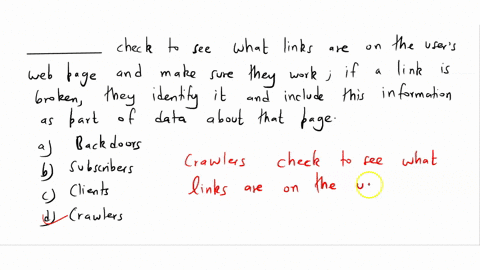 __________ check to see what links are on the user's
web page and make sure they work; if a link is
broken, they identify it and include this information
as part of data about that page.
a) Backdoors
b) Subscribers
c) Clients
d) Crawlers
Crawlers check to see what
links are on the u